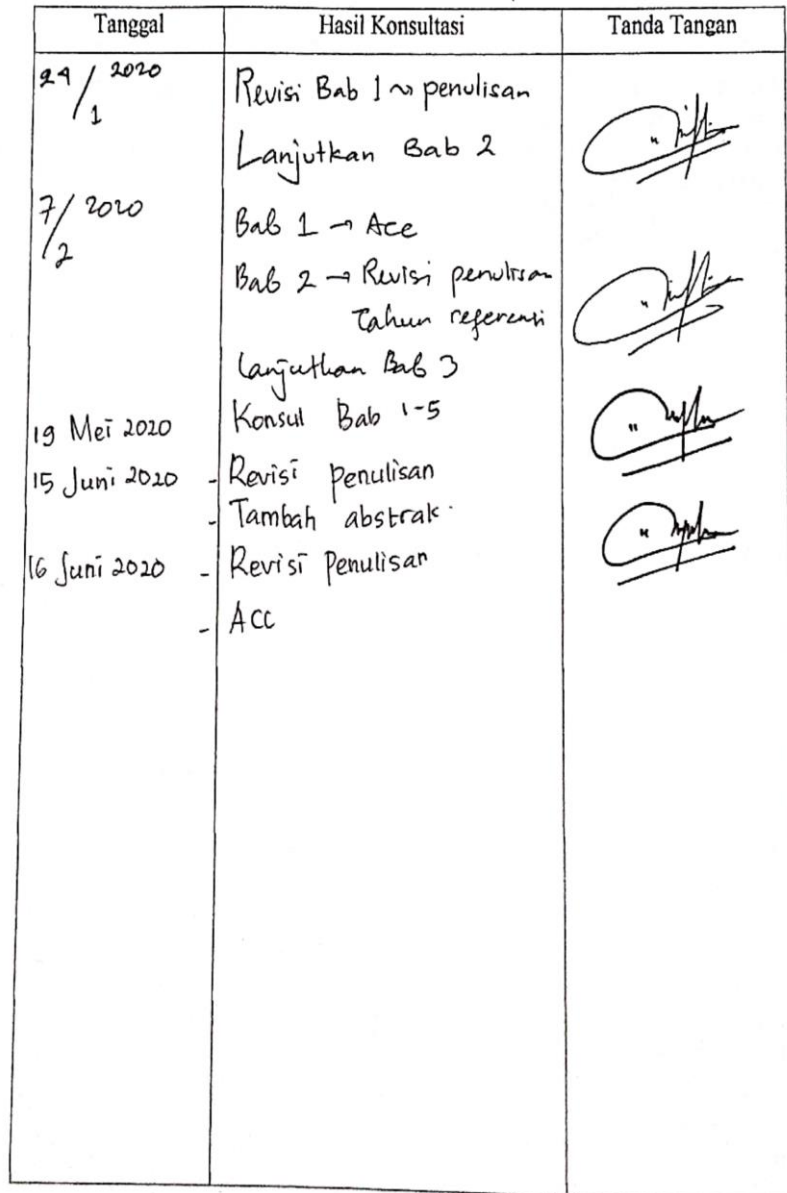 Tanggal Hasil Konsultasi Tanda Tangan
24/1 2020 Revisi Bab 1 → penulisan
Lanjutkan Bab 2
7/2 2020 Bab 1 → Acc
Bab 2 → Revisi penulisan
Tahun referensi
Lanjutkan Bab 3
19 Mei 2020 Konsul Bab 1-5
15 Juni 2020 - Revisi penulisan
- Tambah abstrak.
16 Juni 2020 - Revisi Penulisan
- Acc